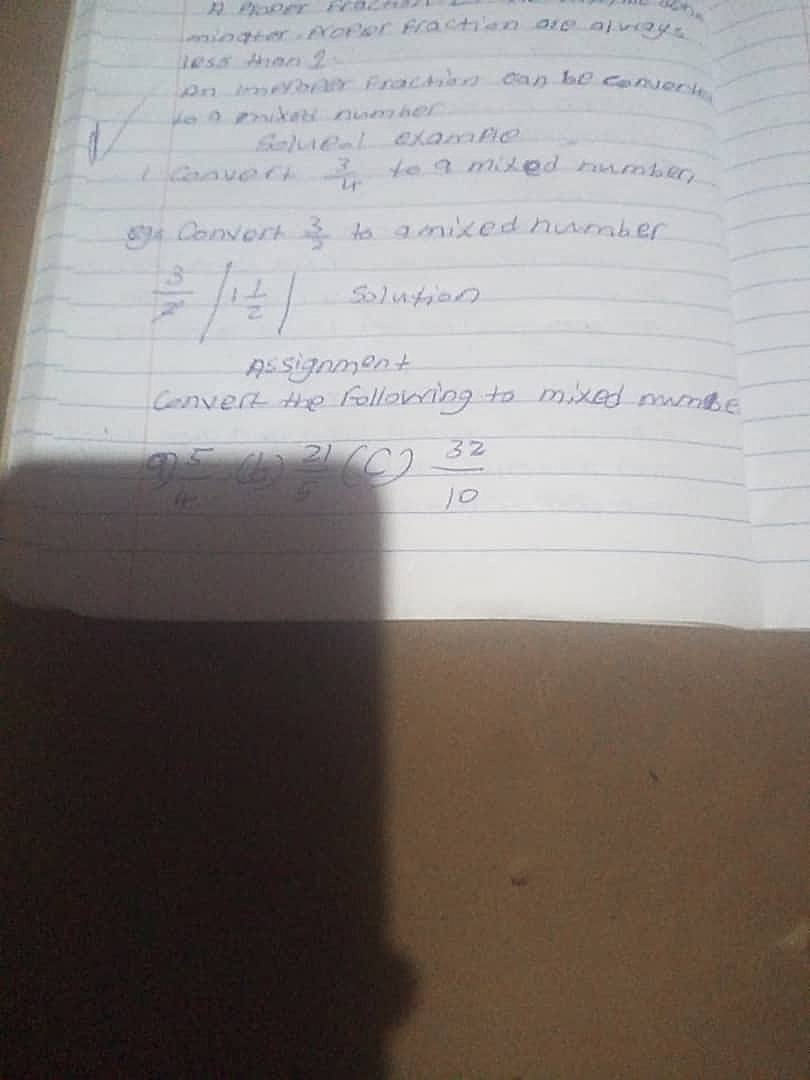 A Proper Fraction
minator. Proper Fraction are always
less than 1.
An improper Fraction can be converte
to a mixed number
Solued example
1 Convert 3/4 to a mixed number,
Convert 3/2 to a mixed number
3/2 | 1 1/2 | Solution
Assignment
Convert the Following to mixed numbe
a) 5/4 (b) 21/5 (C) 32/10